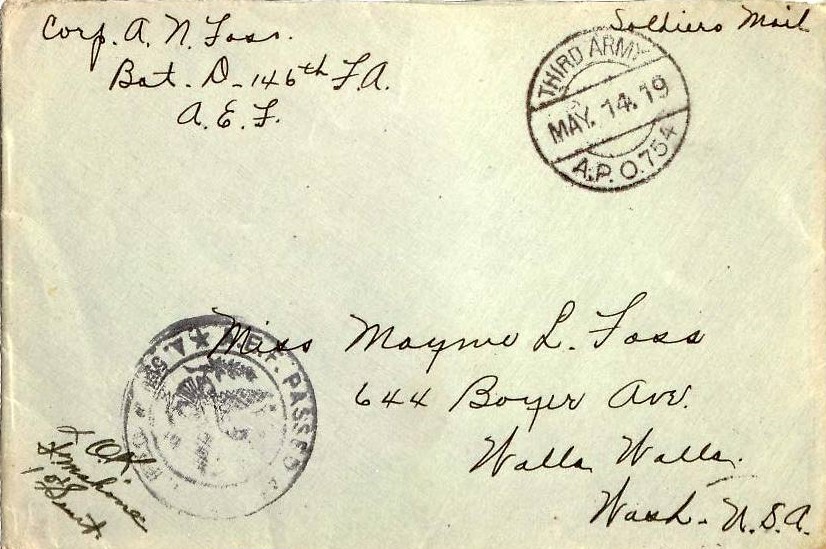 Corp. A. N. Foss.
Bat. D-146th F.A.
A. E. F.
Soldiers Mail
THIRD ARMY
MAY. 14. 19
A.P.O. 754
Miss Mayme L. Foss
644 Boyer Ave.
Walla Walla.
Wash. U.S.A.
A.E.F. PASSED AS
O.K.
1st Lieut